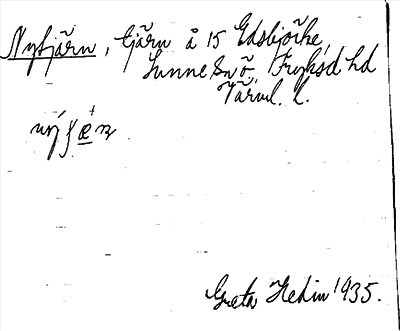 Nytjärn, tjärn å 15 Edsbjörke
Sunne sn ö. Fryksd. hd
Värml. l.
Greta Hedin 1935.